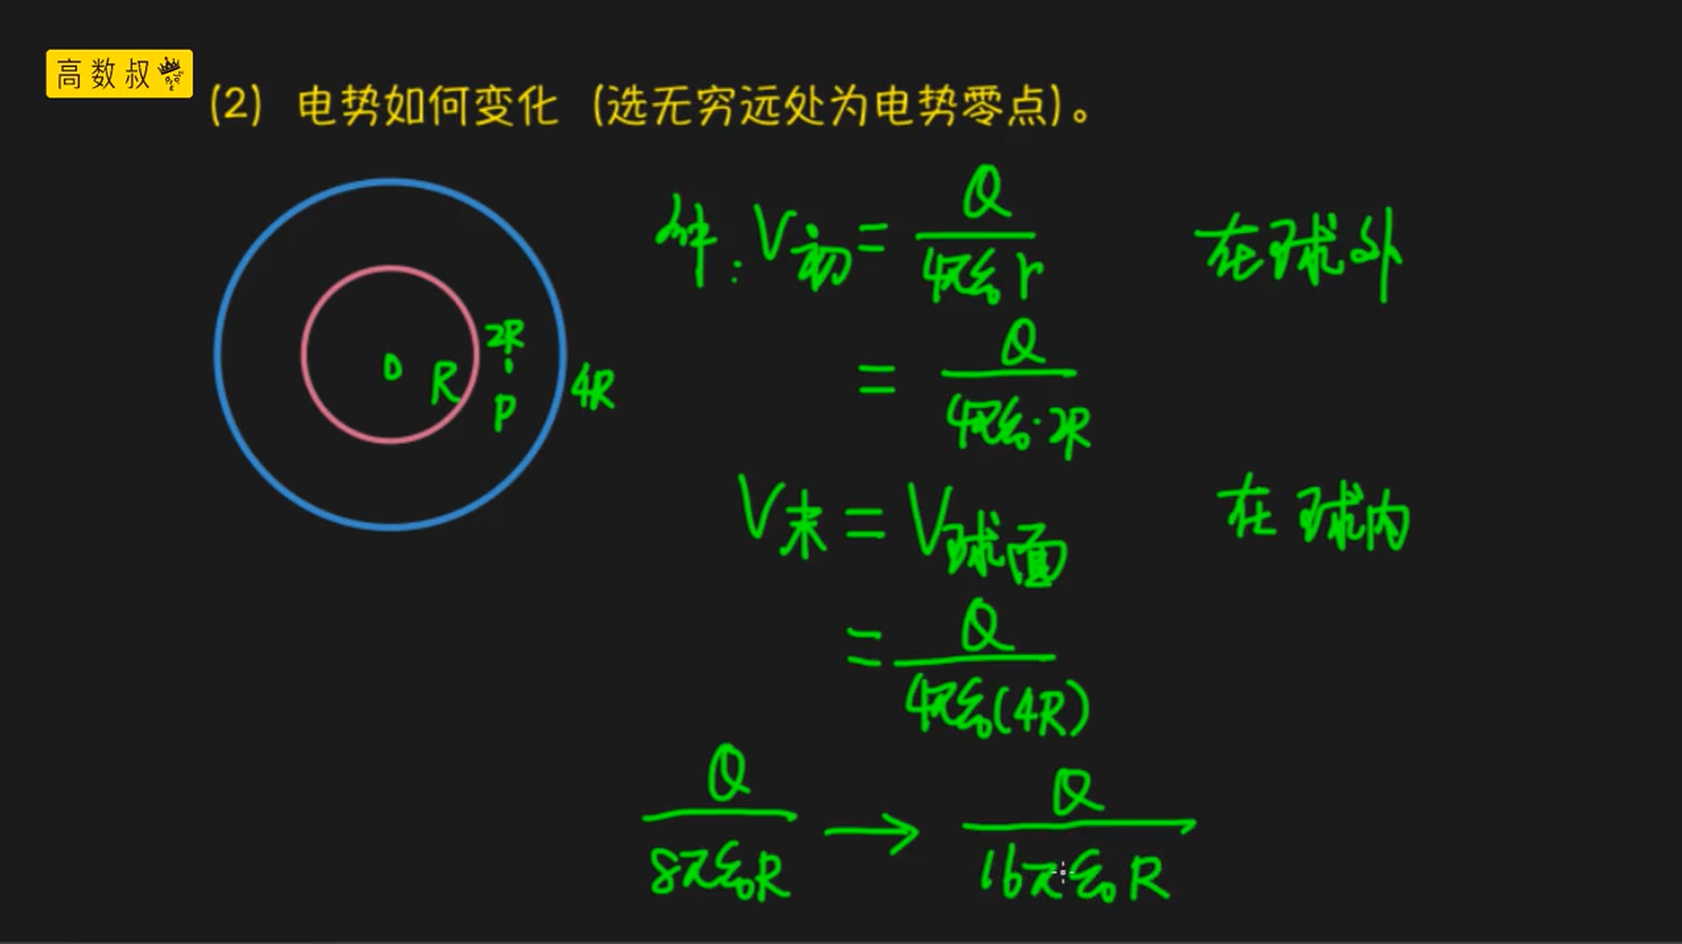 高数叔
(2) 电势如何变化 (选无穷远处为电势零点)。
解: V初 = Q/(4πε₀r) 在球外
= Q/(4πε₀·2R)
O R 2R P 4R
V末 = V球面 在球内
= Q/(4πε₀(4R))
Q/(8πε₀R) → Q/(16πε₀R)